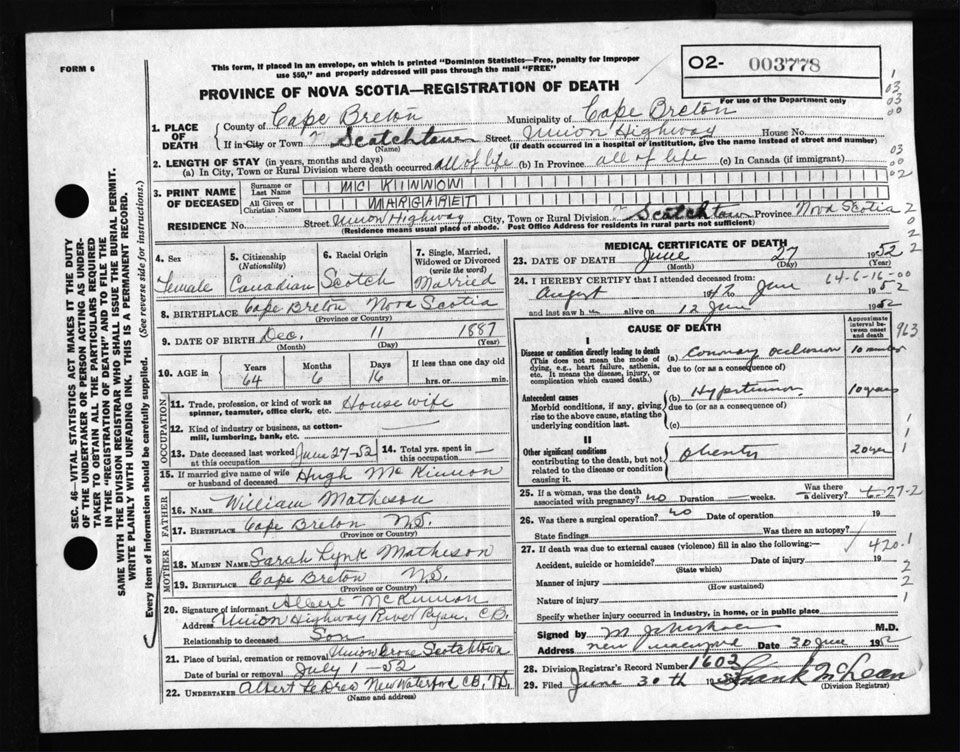 FORM 6
This form, if placed in an envelope, on which is printed "Dominion Statistics—Free, penalty for improper
use $50," and properly addressed will pass through the mail "FREE"
O2- 003778
For use of the Department only
PROVINCE OF NOVA SCOTIA—REGISTRATION OF DEATH
1. PLACE OF DEATH
County of Cape Breton Municipality of Cape Breton
If in City or Town Scotchtown Street Union Highway House No.
(Name) (If death occurred in a hospital or institution, give the name instead of street and number)
2. LENGTH OF STAY (in years, months and days)
(a) In City, Town or Rural Division where death occurred all of life (b) In Province all of life (c) In Canada (if immigrant)
3. PRINT NAME OF DECEASED
Surname or Last Name MC KINNON
All Given or Christian Names MARGARET
RESIDENCE No. Street Union Highway City, Town or Rural Division Scotchtown Province Nova Scotia
(Residence means usual place of abode. Post Office Address for residents in rural parts not sufficient)
4. Sex Female
5. Citizenship (Nationality) Canadian
6. Racial Origin Scotch
7. Single, Married, Widowed or Divorced (write the word) Married
8. BIRTHPLACE Cape Breton Nova Scotia
(Province or Country)
9. DATE OF BIRTH Dec. 11 1887
(Month) (Day) (Year)
10. AGE in Years 64 Months 6 Days 16 If less than one day old hrs. or min.
OCCUPATION
11. Trade, profession, or kind of work as spinner, teamster, office clerk, etc. House wife
12. Kind of industry or business, as cotton-mill, lumbering, bank, etc.
13. Date deceased last worked at this occupation June 27-52
14. Total yrs. spent in this occupation
15. If married give name of wife or husband of deceased Hugh McKinnon
FATHER
16. NAME William Matheson
17. BIRTHPLACE Cape Breton N.S.
(Province or Country)
MOTHER
18. MAIDEN NAME Sarah Lynk Matheson
19. BIRTHPLACE Cape Breton N.S.
(Province or Country)
20. Signature of informant Albert McKinnon
Address Union Highway River Ryan, C.B.
Relationship to deceased Son
21. Place of burial, cremation or removal Union Grove Scotchtown
Date of burial or removal July 1-52
22. UNDERTAKER Albert New Waterford C.B., N.S.
(Name and address)
MEDICAL CERTIFICATE OF DEATH
23. DATE OF DEATH June 27 1952
(Month) (Day) (Year)
64-6-16-00
24. I HEREBY CERTIFY that I attended deceased from:
August 1947 to June 1952
and last saw h alive on 12 June 1952
CAUSE OF DEATH
Approximate interval between onset and death
963
I
Disease or condition directly leading to death
(This does not mean the mode of dying, e.g., heart failure, asthenia, etc. It means the disease, injury, or complication which caused death.)
(a) Coronary occlusion
due to (or as a consequence of)
Antecedent causes
Morbid conditions, if any, giving rise to the above cause, stating the underlying condition last.
(b) Hypertension 10 years
due to (or as a consequence of)
(c)
II
Other significant conditions
contributing to the death, but not related to the disease or condition causing it.
Obesity 20 yrs
25. If a woman, was the death associated with pregnancy? no Duration weeks. Was there a delivery?
6-27-2
26. Was there a surgical operation? no Date of operation 19
State findings Was there an autopsy?
420.1
27. If death was due to external causes (violence) fill in also the following:—
Accident, suicide or homicide? Date of injury 19
(State which)
Manner of injury
(How sustained)
Nature of injury
Specify whether injury occurred in industry, in home, or in public place
Signed by M.D.
Address New Date 30 June 1952
28. Division Registrar's Record Number 1602
29. Filed June 30th 1952 Frank McLean
(Division Registrar)
SEC. 46—VITAL STATISTICS ACT MAKES IT THE DUTY
OF THE UNDERTAKER OR PERSON ACTING AS UNDER-
TAKER TO OBTAIN ALL THE PARTICULARS REQUIRED
IN THE "REGISTRATION OF DEATH" AND TO FILE THE
SAME WITH THE DIVISION REGISTRAR WHO SHALL ISSUE THE BURIAL PERMIT.
WRITE PLAINLY WITH UNFADING INK. THIS IS A PERMANENT RECORD.
Every item of information should be carefully supplied. (See reverse side for instructions.)